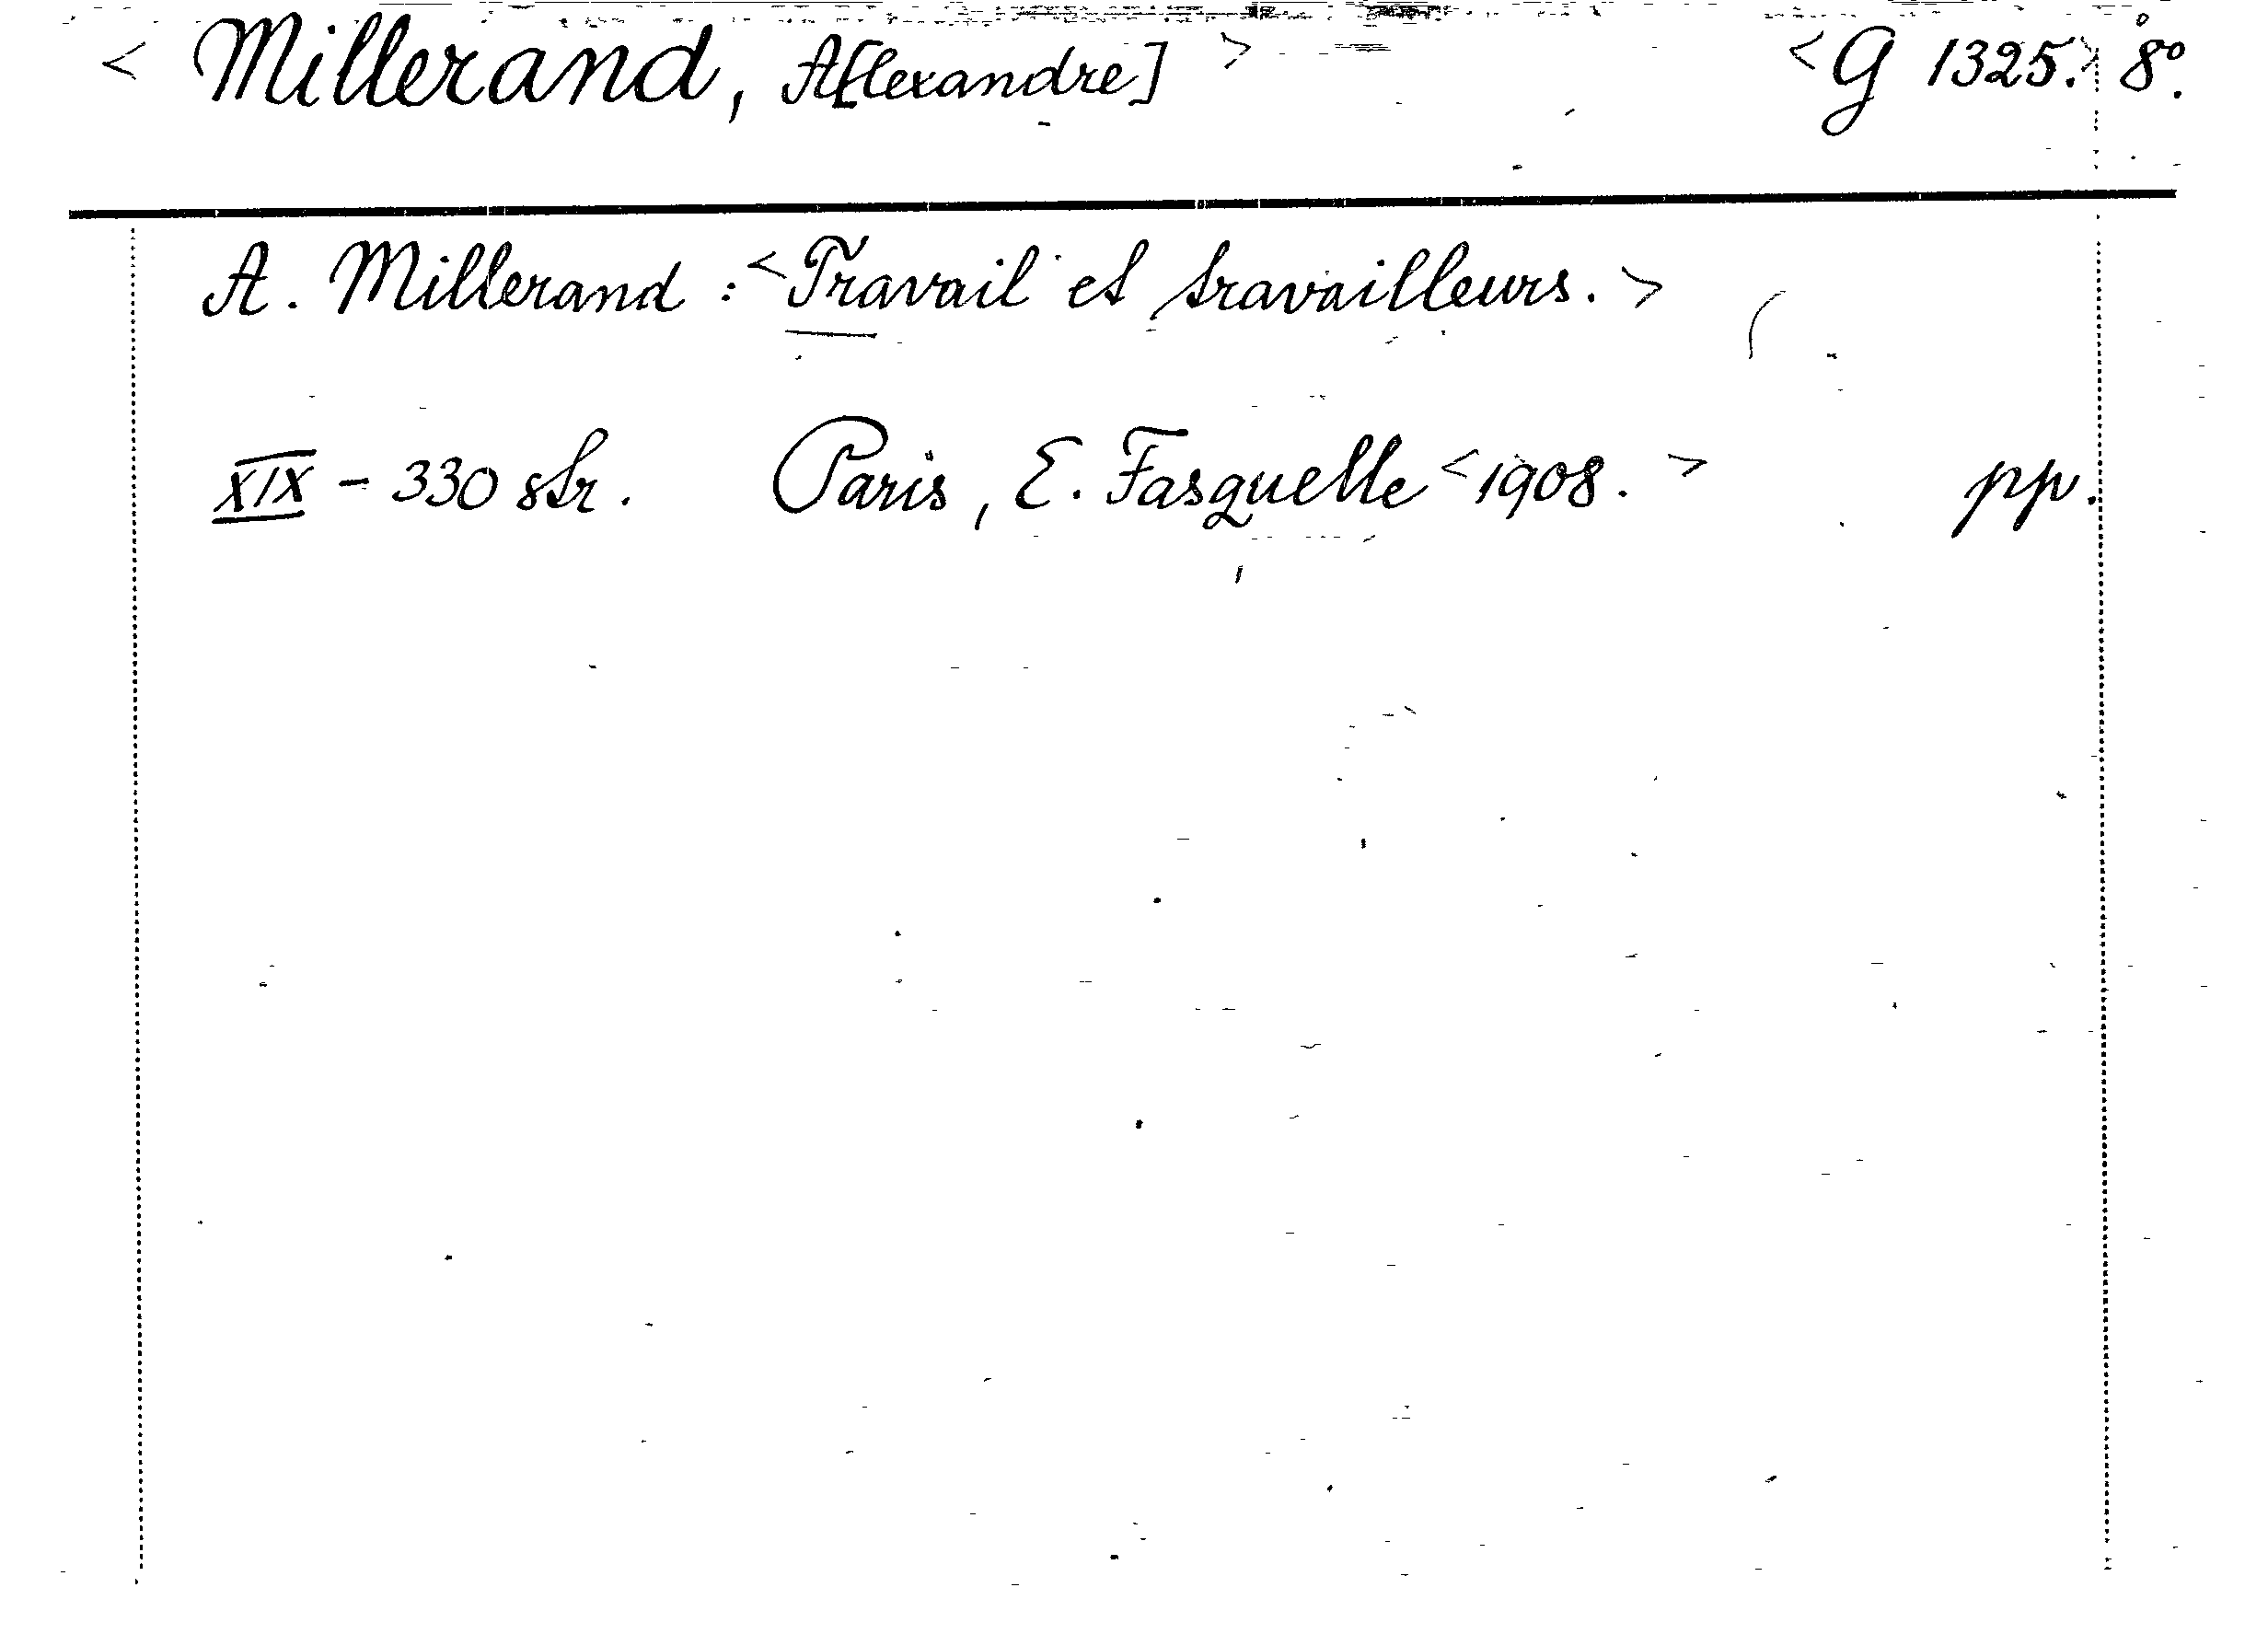 < Millerand, A[lexandre] > < G 1325. > 8°.
A. Millerand : < Travail et travailleurs. >
XIX - 330 str. Paris, E. Fasquelle < 1908. > pp.